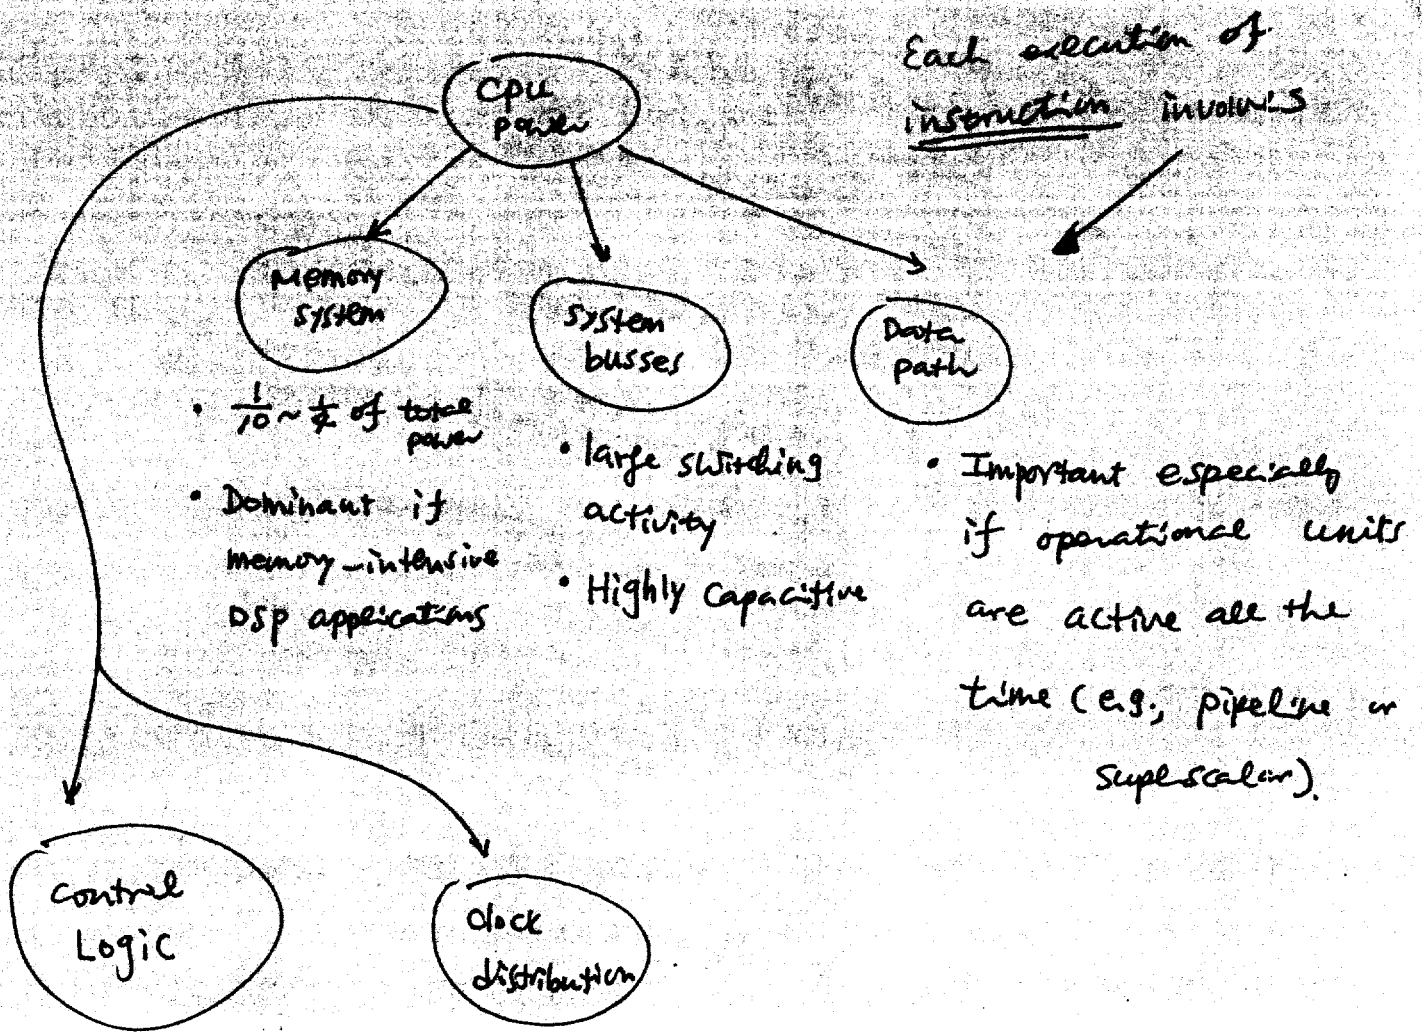 Each execution of
instruction involves
CPU
power
Memory
system
System
busses
Data
path
• 1/10 ~ of total
power
• Dominant if
memory-intensive
DSP applications
• large switching
activity
• Highly capacitive
• Important especially
if operational units
are active all the
time (e.g., pipeline or
superscalar).
Control
Logic
Clock
distribution